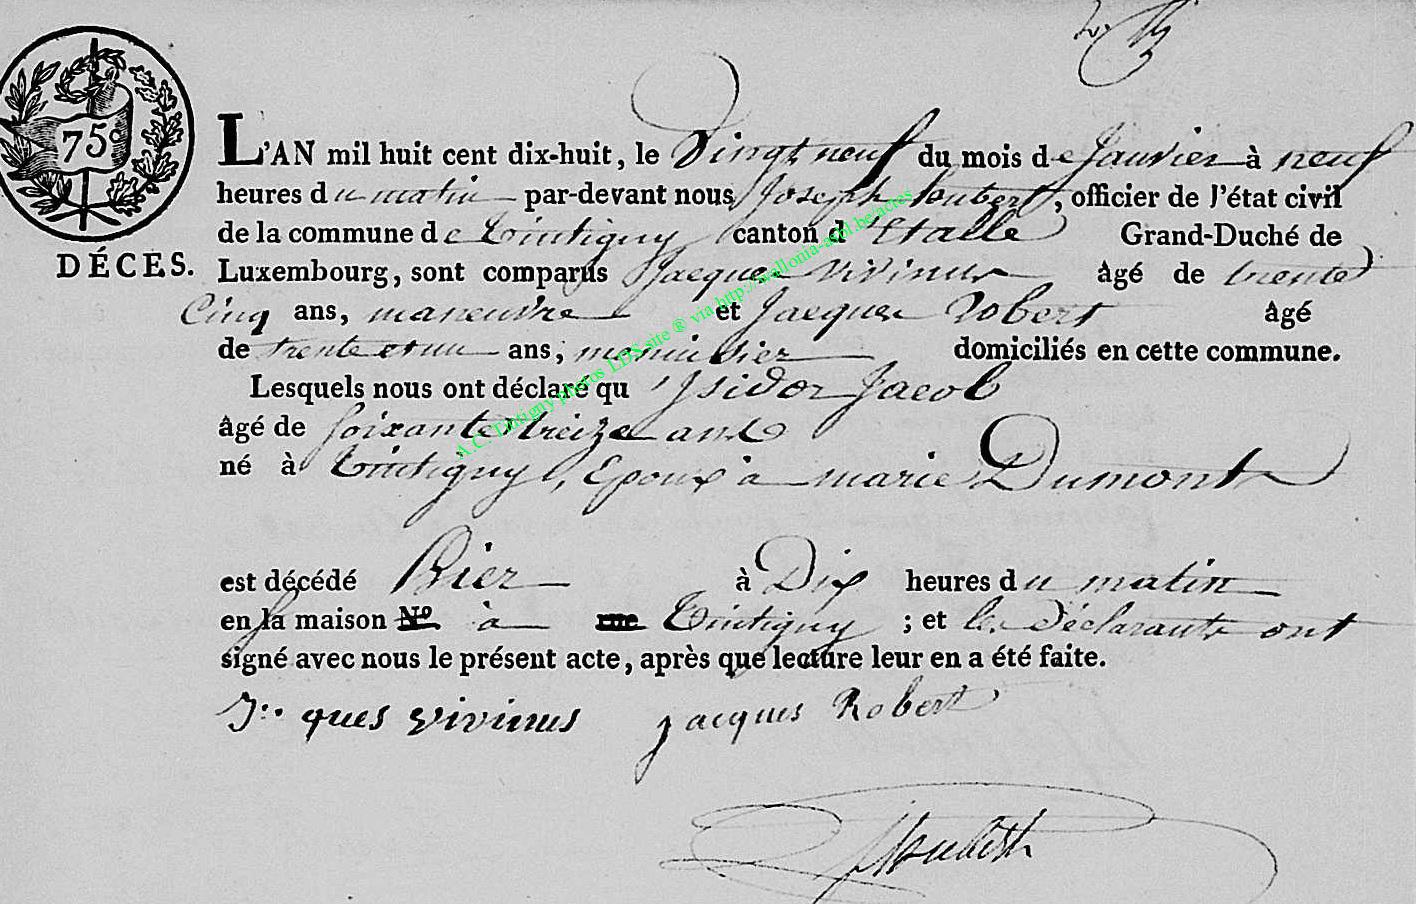 75c
DÉCÈS.
L'AN mil huit cent dix-huit, le Vingt neuf du mois de Janvier à neuf
heures du matin par-devant nous Joseph hubert, officier de l'état civil
de la commune de tintigny canton d'Etalle Grand-Duché de
Luxembourg, sont comparus Jacques vivinus âgé de trente
Cinq ans, maneuvre et Jacques Robert âgé
de trente et un ans, menuisier domiciliés en cette commune.
Lesquels nous ont déclaré qu'Isidor Jacob
âgé de soixante treize ans
né à tintigny, Epoux a marie Dumont
est décédé hier à Dix heures du matin
en sa maison N° à rue tintigny ; et les Déclarants ont
signé avec nous le présent acte, après que lecture leur en a été faite.
Jacques vivinus jacques Robert
A.C. Tintigny photos LDS site ® via http://wallonia-asbl.be/actes